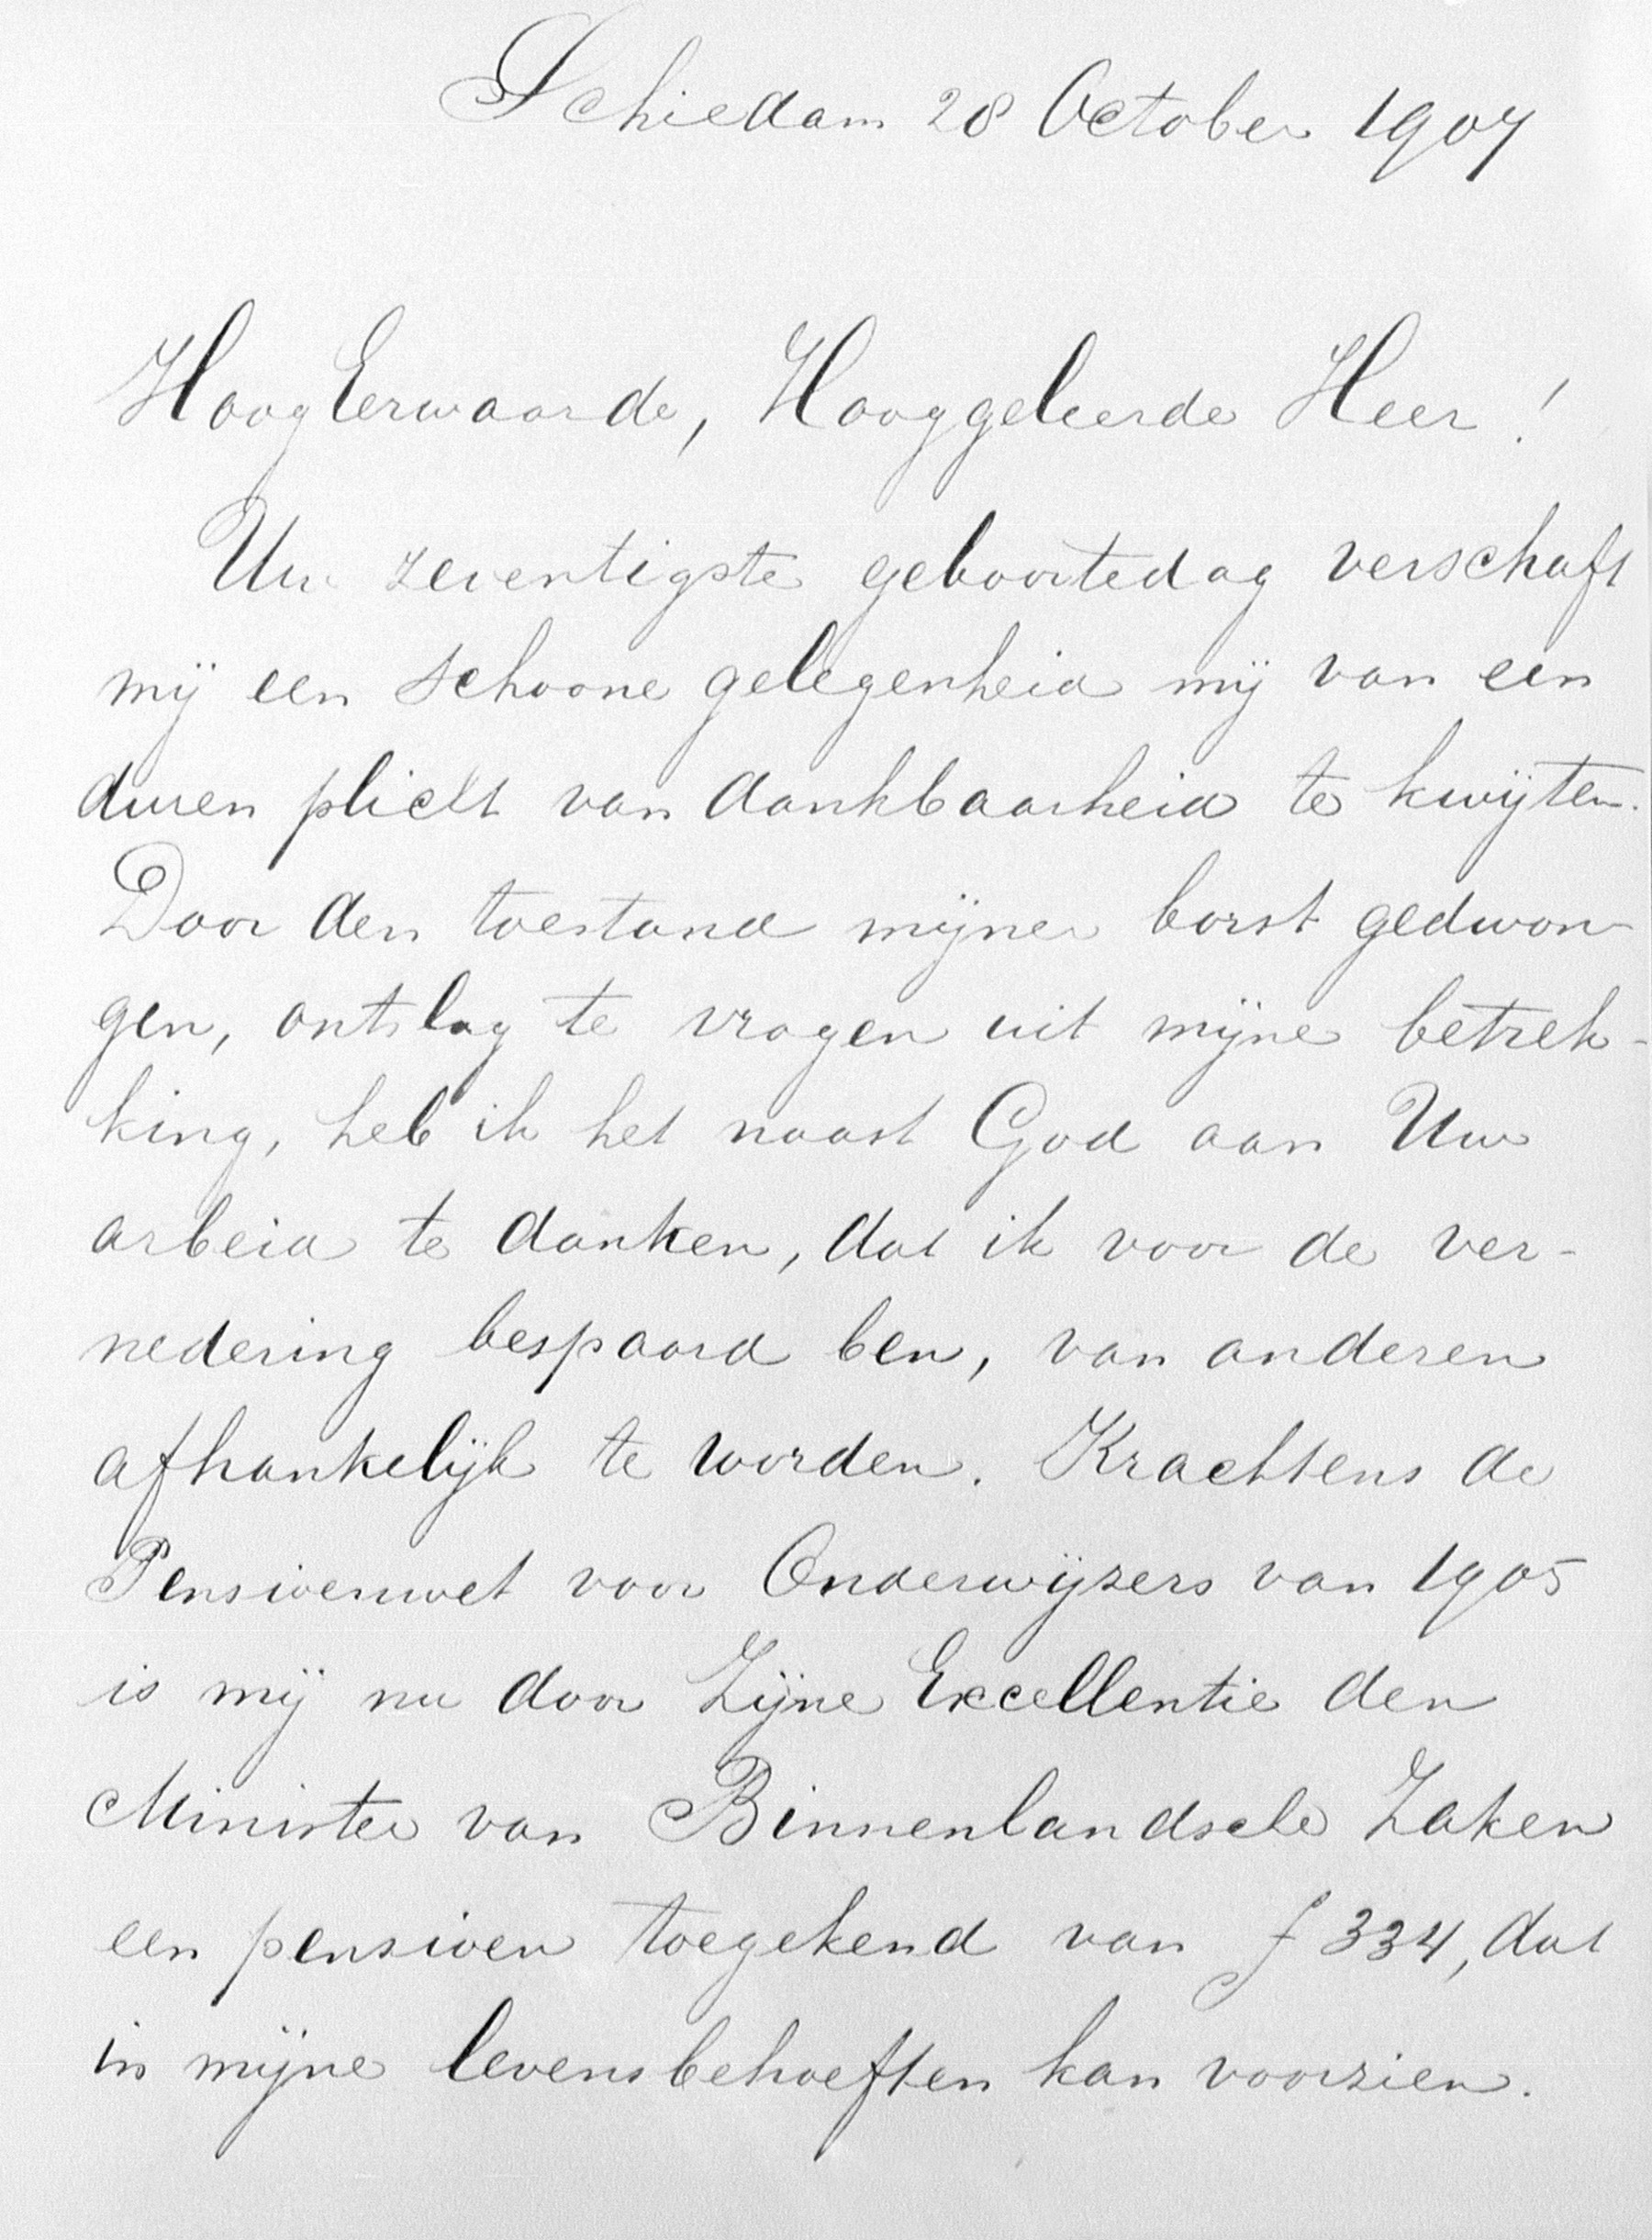 Schiedam 28 October 1907
HoogEerwaarde, Hooggeleerde Heer!
Uw zeventigste geboortedag verschaft
mij een schoone gelegenheid mij van een
duren plicht van dankbaarheid te kwijten.
Door den toestand mijner borst gedwon-
gen, ontslag te vragen uit mijne betrek-
king, heb ik het naast God aan Uw
arbeid te danken, dat ik voor de ver-
nedering bespaard ben, van anderen
afhankelijk te worden. Krachtens de
Pensioenwet voor Onderwijzers van 1905
is mij nu door Zijne Excellentie den
Minister van Binnenlandsche Zaken
een pensioen toegekend van f 334, dat
in mijne levensbehoeften kan voorzien.